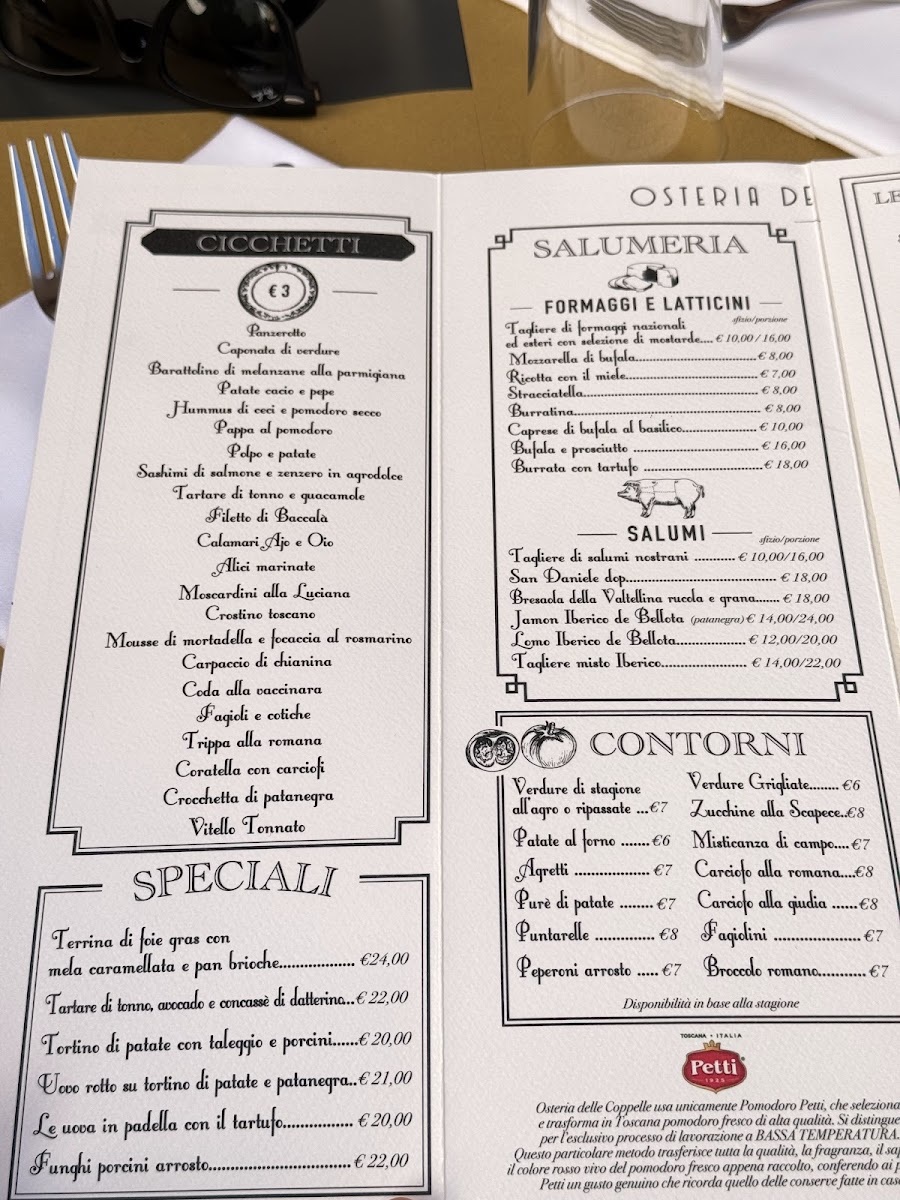 CICCHETTI
€ 3
Panzerotto
Caponata di verdure
Barattolino di melanzane alla parmigiana
Patate cacio e pepe
Hummus di ceci e pomodoro secco
Pappa al pomodoro
Polpo e patate
Sashimi di salmone e zenzero in agrodolce
Tartare di tonno e guacamole
Filetto di Baccalà
Calamari Ajo e Oio
Alici marinate
Moscardini alla Luciana
Crostino toscano
Mousse di mortadella e focaccia al rosmarino
Carpaccio di chianina
Coda alla vaccinara
Fagioli e cotiche
Trippa alla romana
Coratella con carciofi
Crocchetta di patanegra
Vitello Tonnato
SPECIALI
Terrina di foie gras con
mela caramellata e pan brioche.................. €24,00
Tartare di tonno, avocado e concassè di datterino...€ 22,00
Tortino di patate con taleggio e porcini......€ 20,00
Uovo rotto su tortino di patate e patanegra..€ 21,00
Le uova in padella con il tartufo................. € 20,00
Funghi porcini arrosto...............................€ 22,00
OSTERIA DE
SALUMERIA
FORMAGGI E LATTICINI
sfizio/porzione
Tagliere di formaggi nazionali
ed esteri con selezione di mostarde.... € 10,00 / 16,00
Mozzarella di bufala..............................€ 8,00
Ricotta con il miele................................. € 7,00
Stracciatella............................................ € 8,00
Burratina............................................... € 8,00
Caprese di bufala al basilico.................... € 10,00
Bufala e prosciutto ............................... € 16,00
Burrata con tartufo .............................€ 18,00
SALUMI
sfizio/porzione
Tagliere di salumi nostrani ........... € 10,00/16,00
San Daniele dop...................................... € 18,00
Bresaola della Valtellina rucola e grana....... € 18,00
Jamon Iberico de Bellota (patanegra) € 14,00/24,00
Lomo Iberico de Bellota................. € 12,00/20,00
Tagliere misto Iberico..................... € 14,00/22,00
CONTORNI
Verdure di stagione
all'agro o ripassate ...€7
Patate al forno .......€6
Agretti ..................€7
Purè di patate ........€7
Puntarelle .............. €8
Peperoni arrosto .....€7
Verdure Grigliate........ €6
Zucchine alla Scapece..€8
Misticanza di campo....€7
Carciofo alla romana....€8
Carciofo alla giudia ......€8
Fagiolini .....................€7
Broccolo romano...........€7
Disponibilità in base alla stagione
TOSCANA • ITALIA
Petti
1925
Osteria delle Coppelle usa unicamente Pomodoro Petti, che seleziona
e trasforma in Toscana pomodoro fresco di alta qualità. Si distingue
per l'esclusivo processo di lavorazione a BASSA TEMPERATURA.
Questo particolare metodo trasferisce tutta la qualità, la fragranza, il sap
il colore rosso vivo del pomodoro fresco appena raccolto, conferendo ai p
Petti un gusto genuino che ricorda quello delle conserve fatte in casa
LE